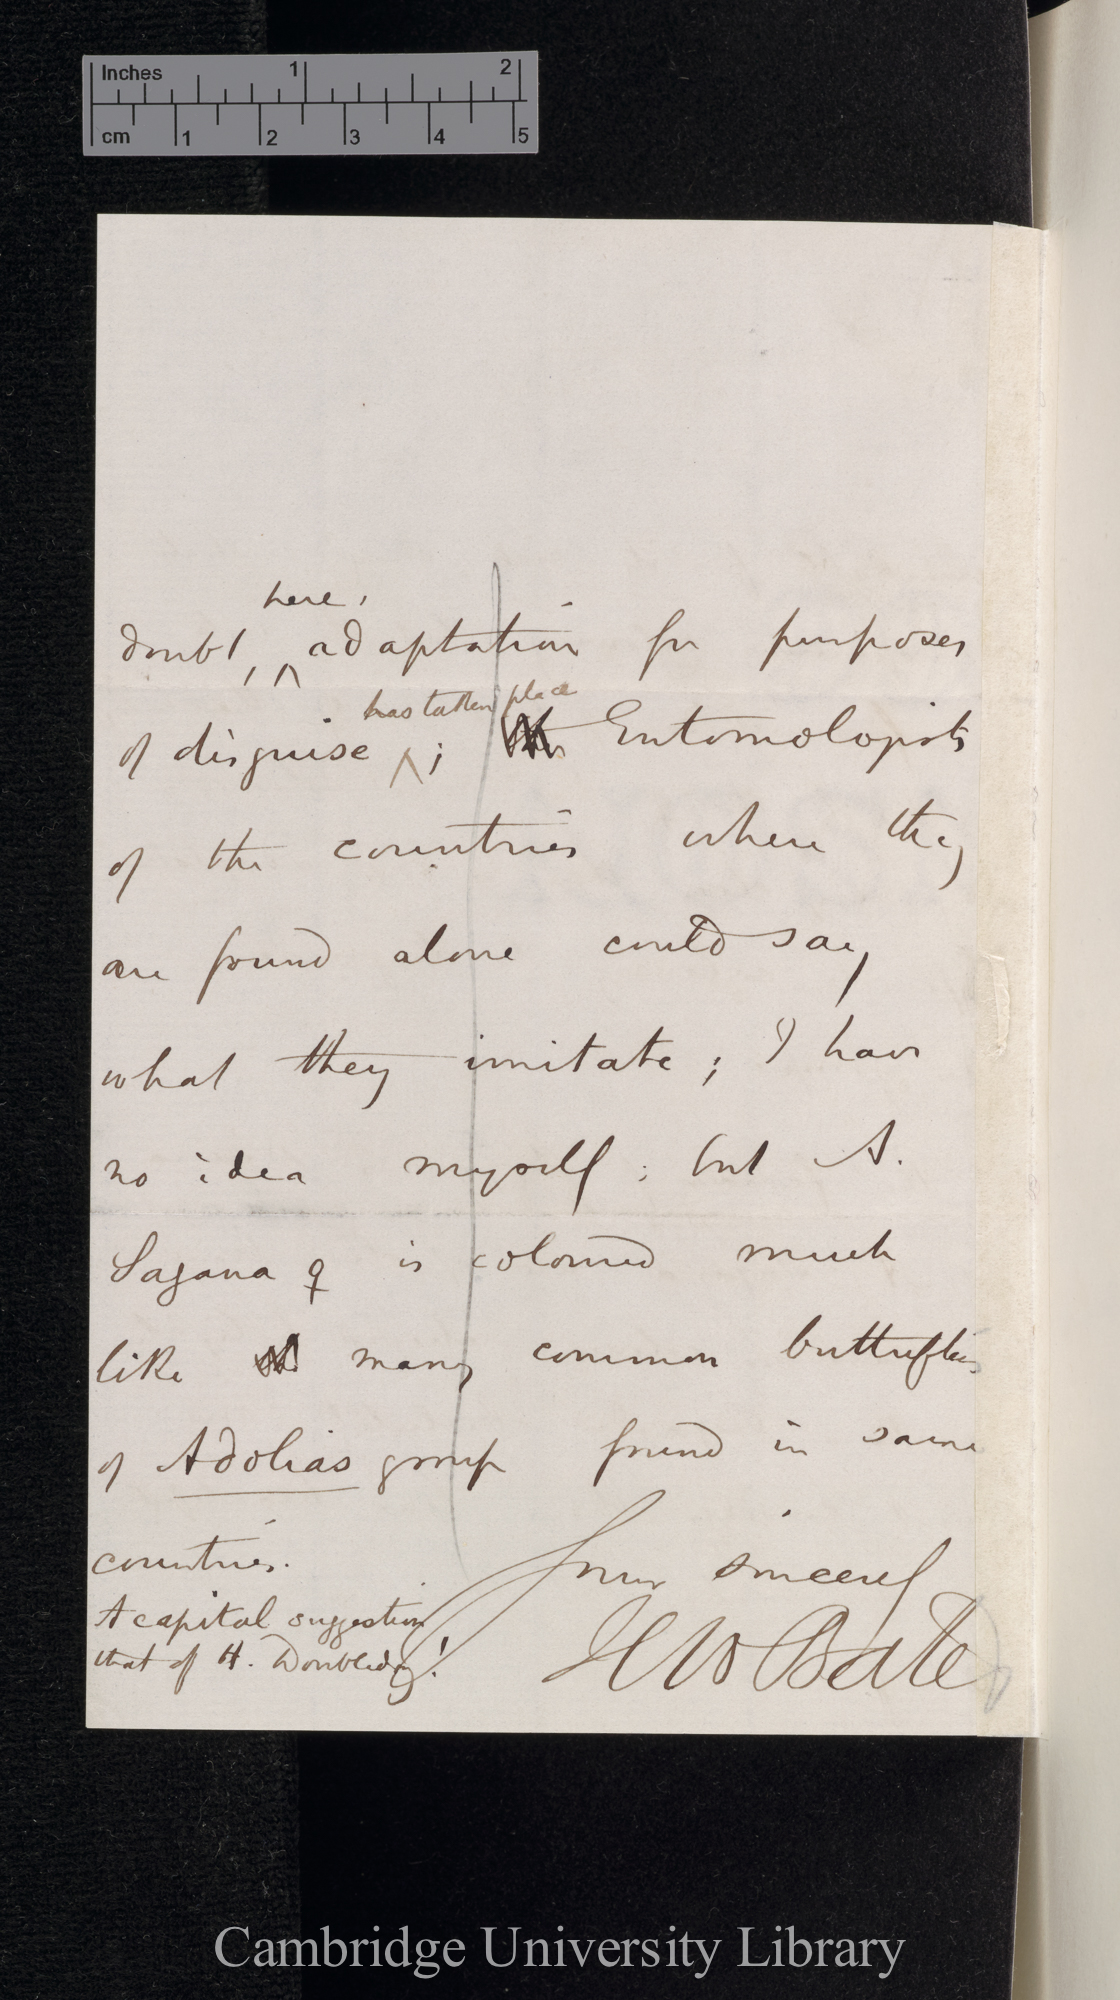 Inches 1 2
cm 1 2 3 4 5
here,
doubt, ^ adaptation for purposes
has taken place
of disguise ^; Entomologists
of the countries where they
are found alone could say
what they imitate; I have
no idea myself; but A.
Sagana ♀ is coloured much
like many common butterflies
of Adolias group found in same
countries.
Yours sincerely
A capital suggestion
that of H. Doubleday!
H W Bates
Cambridge University Library